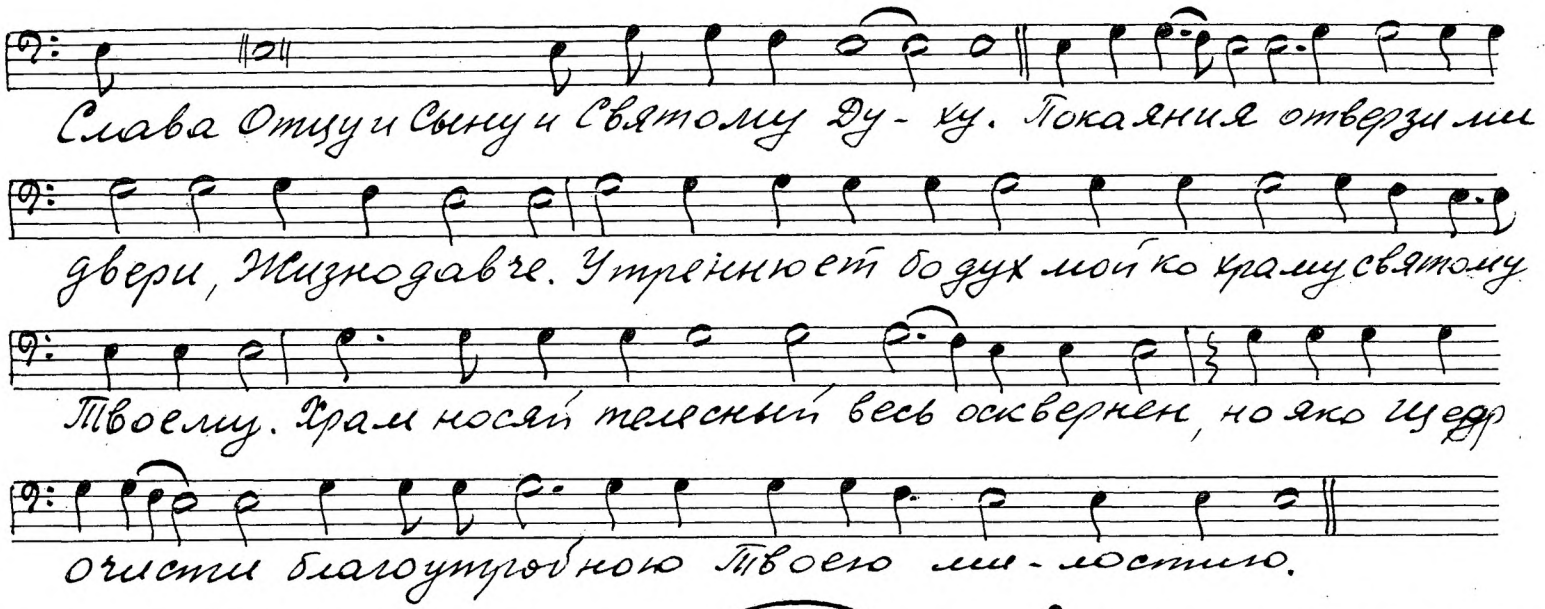 Слава Отцу и Сыну и Святому Ду - ху. Покаяния отверзи ми
двери, Жизнодавче. Утреннюет бо дух мой ко храму святому
Твоему. Храм носяй телесный весь осквернен, но яко Щедр
очисти благоутробною Твоею ми - лостию.